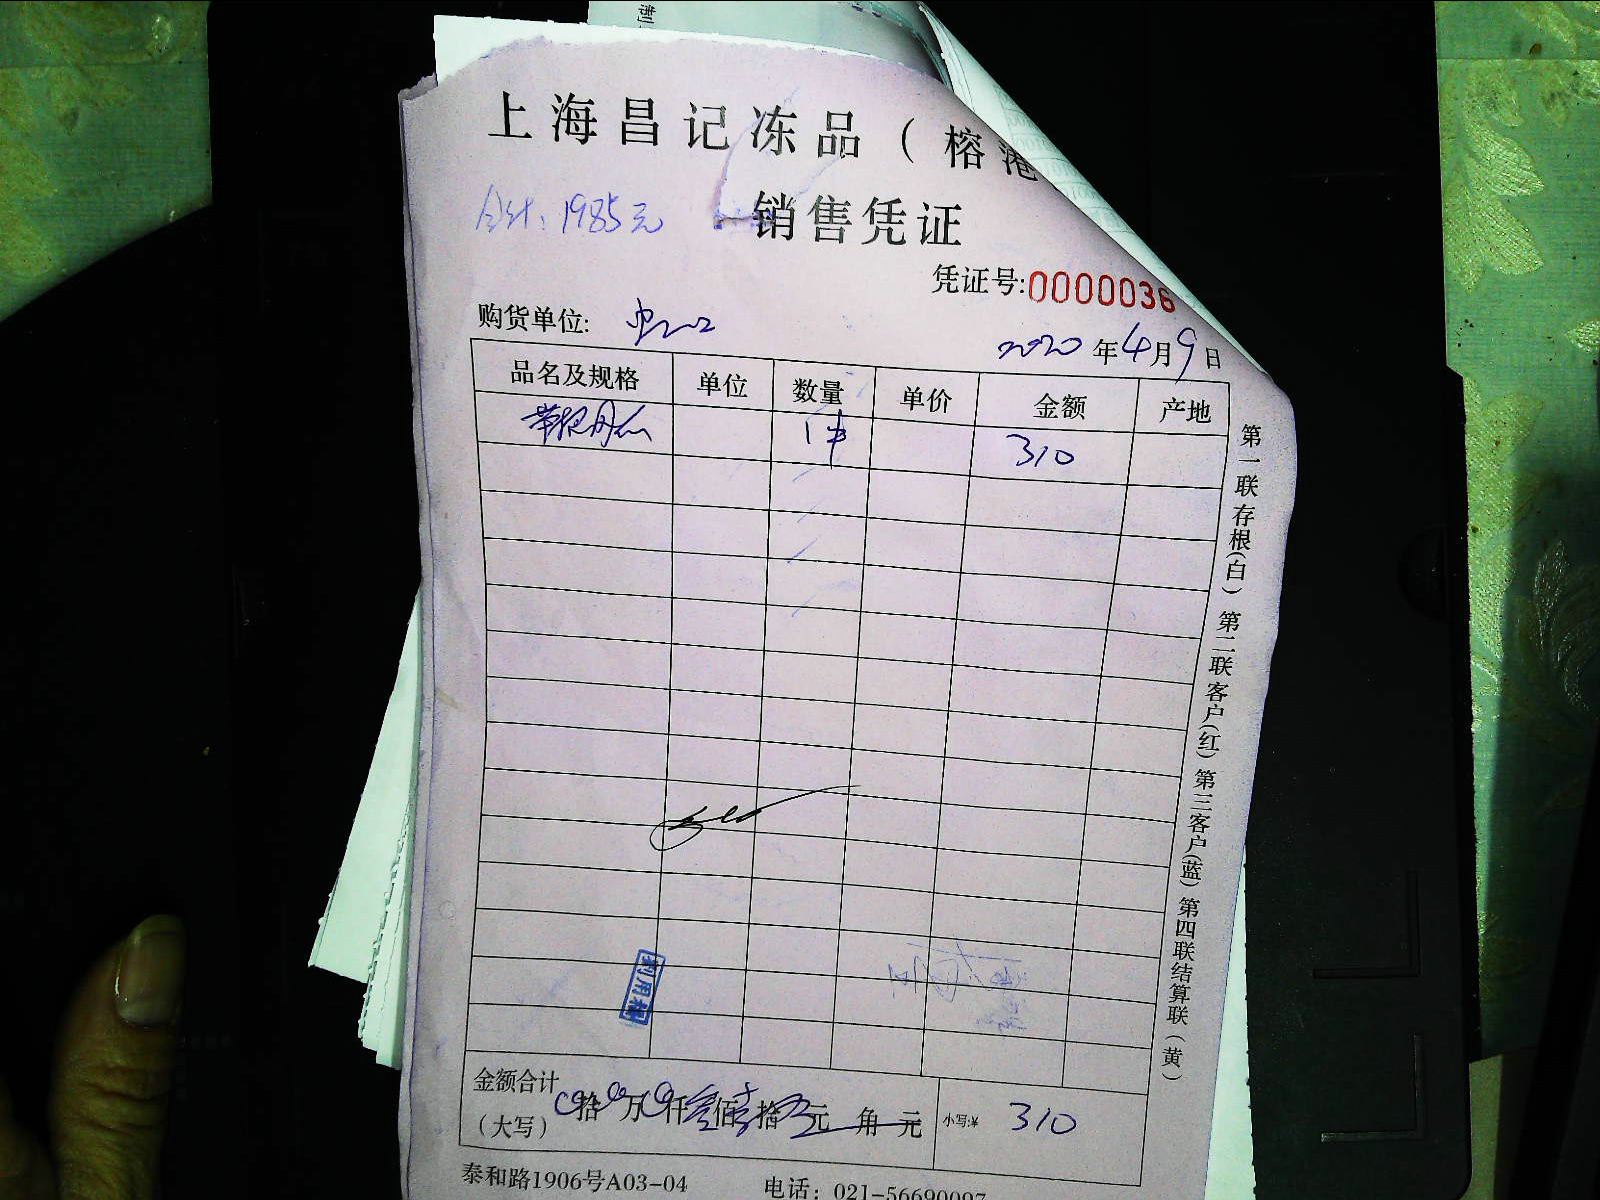 上海昌记冻品（榕港
合计：1985元
销售凭证
凭证号:0000036
购货单位:
2020年4月9日
品名及规格 单位 数量 单价 金额 产地
1件 310
金额合计
（大写） 拾 万 仟叁佰壹拾 元 角 元 小写:¥ 310
泰和路1906号A03-04 电话：021-56690097
第一联存根(白) 第二联客户(红) 第三客户(蓝) 第四联结算联(黄)